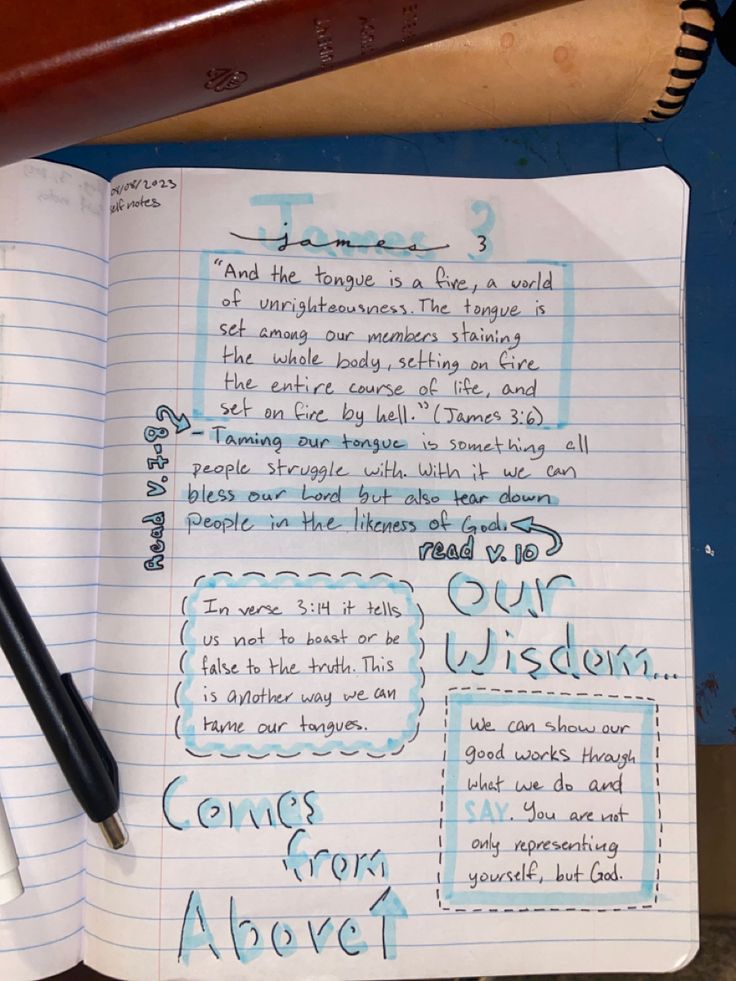 08/08/2023
self notes
James 3
james 3
"And the tongue is a fire, a world
of unrighteousness. The tongue is
set among our members staining
the whole body, setting on fire
the entire course of life, and
set on fire by hell." (James 3:6)
Read v.7-8
- Taming our tongue is something all
people struggle with. With it we can
bless our Lord but also tear down
people in the likeness of God.
read v.10
In verse 3:14 it tells
us not to boast or be
false to the truth. This
is another way we can
tame our tongues.
Our
Wisdom...
We can show our
good works through
what we do and
SAY. You are not
only representing
yourself, but God.
Comes
from
Above↑